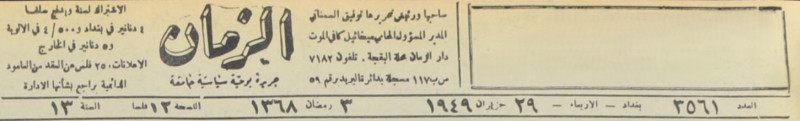 صاحبها ورئيس تحريرها توفيق السمعاني
المدير المسؤول المحامي ميخائيل كافي الموت
دار الزمان محلة البقجة . تلفون ٧١٨٢
ص ب ١١٧ مسجلة بدائرة البريد رقم ٥٩
الزمان
جريدة يومية سياسية جامعة
الاشتراك لسنة ويدفع سلفا
٤ دنانير في بغداد و ٤/٥٠٠ في الالوية
و ٥ دنانير في الخارج
الاعلانات ٢٥٠ فلس عن العقد من العامود
الدائمية يراجع بشأنها الادارة
العدد ٣٥٦١ بغداد – الاربعاء – ٢٩ حزيران ١٩٤٩ ٣ رمضان ١٣٦٨ النسخة ١٢ فلسا السنة ١٣